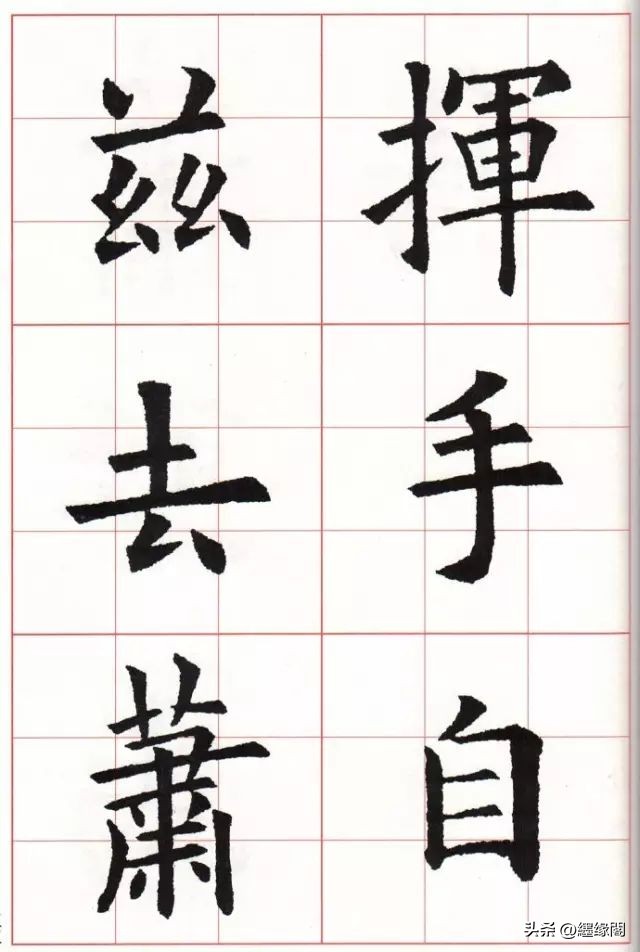 揮手自
茲去蕭
头条 @繮缘閣